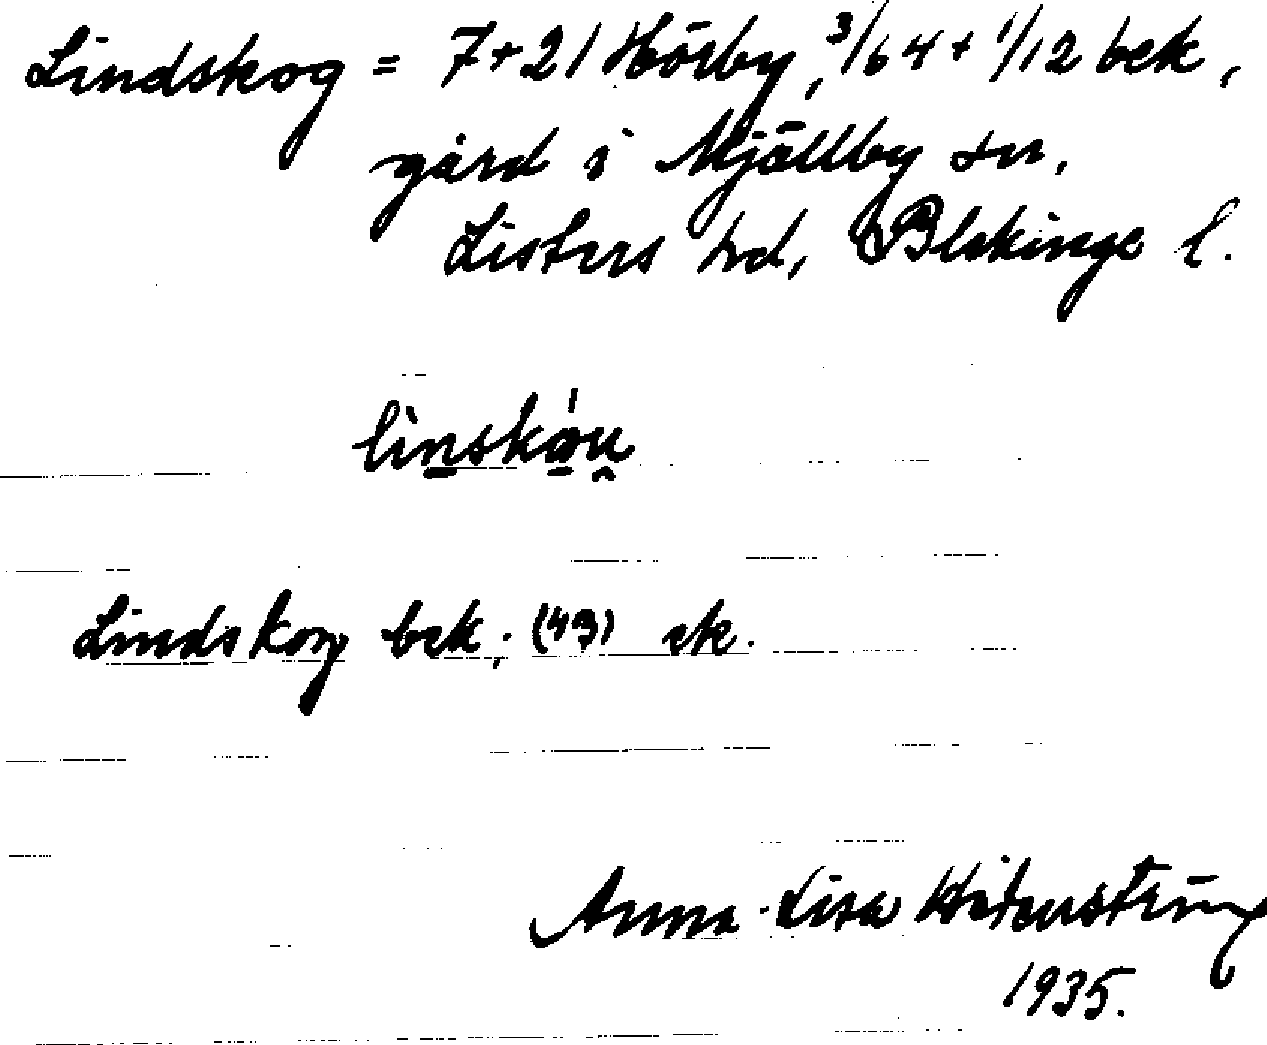 Lindskog = 7+21 Hörby, 3/64 + 1/12 bek,
gård i Mjällby sn,
Listers hd, Blekinge l.
linskåu
Lindskog bek; (43) ek.
Anna-Lisa
1935.